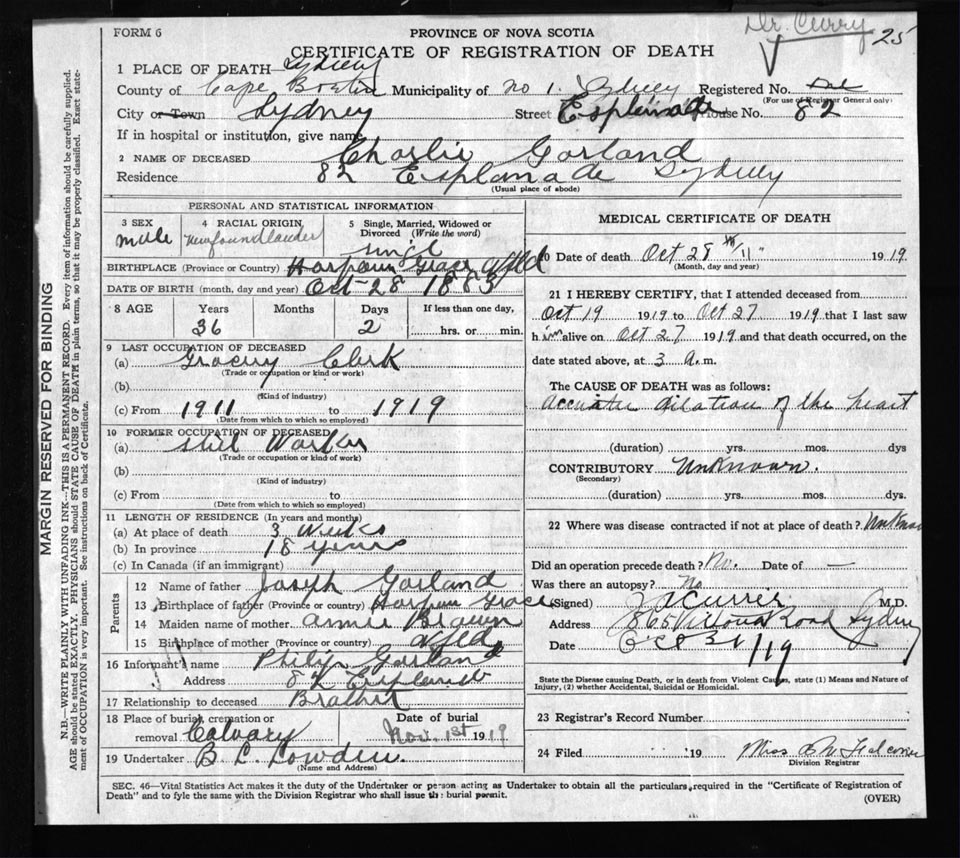 Dr. Curry 25
FORM 6
PROVINCE OF NOVA SCOTIA
CERTIFICATE OF REGISTRATION OF DEATH
1 PLACE OF DEATH—Sydney
County of Cape Breton Municipality of No 1. Sydney Registered No.
(For use of Registrar General only)
City or Town Sydney Street Esplanade House No. 82
If in hospital or institution, give name
2 NAME OF DECEASED Charlie Garland
Residence 82 Esplanade Sydney
(Usual place of abode)
PERSONAL AND STATISTICAL INFORMATION
3 SEX male
4 RACIAL ORIGIN Newfoundlander
5 Single, Married, Widowed or Divorced (Write the word)
BIRTHPLACE (Province or Country) Harpour Grace Nfld
DATE OF BIRTH (month, day and year) Oct 28 1883
8 AGE Years 36 Months Days 2 If less than one day, hrs. or min.
9 LAST OCCUPATION OF DECEASED
(a) Grocery Clerk
(Trade or occupation or kind or work)
(b)
(Kind of industry)
(c) From 1911 to 1919
(Date from which to which so employed)
10 FORMER OCCUPATION OF DECEASED
(a) Steel Worker
(Trade or occupation or kind of work)
(b)
(Kind of industry)
(c) From to
(Date from which to which so employed)
11 LENGTH OF RESIDENCE (In years and months)
(a) At place of death 3 weeks
(b) In province 18 years
(c) In Canada (if an immigrant)
Parents
12 Name of father Joseph Garland
13 Birthplace of father (Province or country) Harpour Grace
14 Maiden name of mother Annie Brawn
15 Birthplace of mother (Province or country) Nfld
16 Informant's name Philip Garland
Address 82 Esplanade
17 Relationship to deceased Brother
18 Place of burial, cremation or removal Calvary Date of burial Nov. 1st 1919
19 Undertaker B. C. Lowden.
(Name and Address)
MEDICAL CERTIFICATE OF DEATH
20 Date of death Oct 28 1919
(Month, day and year)
21 I HEREBY CERTIFY, that I attended deceased from
Oct 19 1919 to Oct 27 1919 that I last saw
him alive on Oct 27 1919 and that death occurred, on the
date stated above, at 3 a.m.
The CAUSE OF DEATH was as follows:
Accuate dilation of the heart
(duration) yrs. mos. dys
CONTRIBUTORY Unknown.
(Secondary)
(duration) yrs. mos. dys.
22 Where was disease contracted if not at place of death?
Did an operation precede death? No. Date of —
Was there an autopsy? No
(Signed) M.D.
Address Road Sydney
Date Oct 31/19
State the Disease causing Death, or in death from Violent Causes, state (1) Means and Nature of
Injury, (2) whether Accidental, Suicidal or Homicidal.
23 Registrar's Record Number
24 Filed 19 Miss
Division Registrar
SEC. 46—Vital Statistics Act makes it the duty of the Undertaker or person acting as Undertaker to obtain all the particulars required in the "Certificate of Registration of
Death" and to fyle the same with the Division Registrar who shall issue the burial permit.
(OVER)
MARGIN RESERVED FOR BINDING
N.B.—WRITE PLAINLY WITH UNFADING INK—THIS IS A PERMANENT RECORD. Every item of information should be carefully supplied.
AGE should be stated EXACTLY. PHYSICIANS should STATE CAUSE OF DEATH in plain terms, so that it may be properly classified. Exact state-
ment of OCCUPATION is very important. See instructions on back of Certificate.